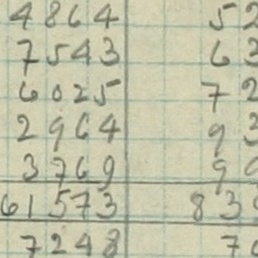 4864 52
7543 63
6025 72
2964 93
3769 99
61573 839
7248 70